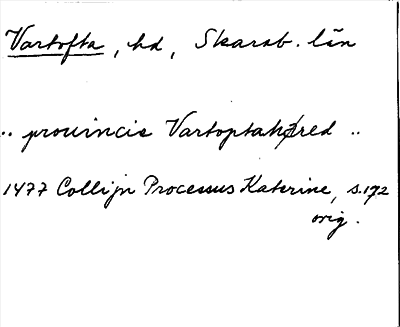 Vartofta, hd, Skarab. län
.. prouincie Vartoptahæred ..
1477 Collijn Processus Katerine, s. 172
orig.